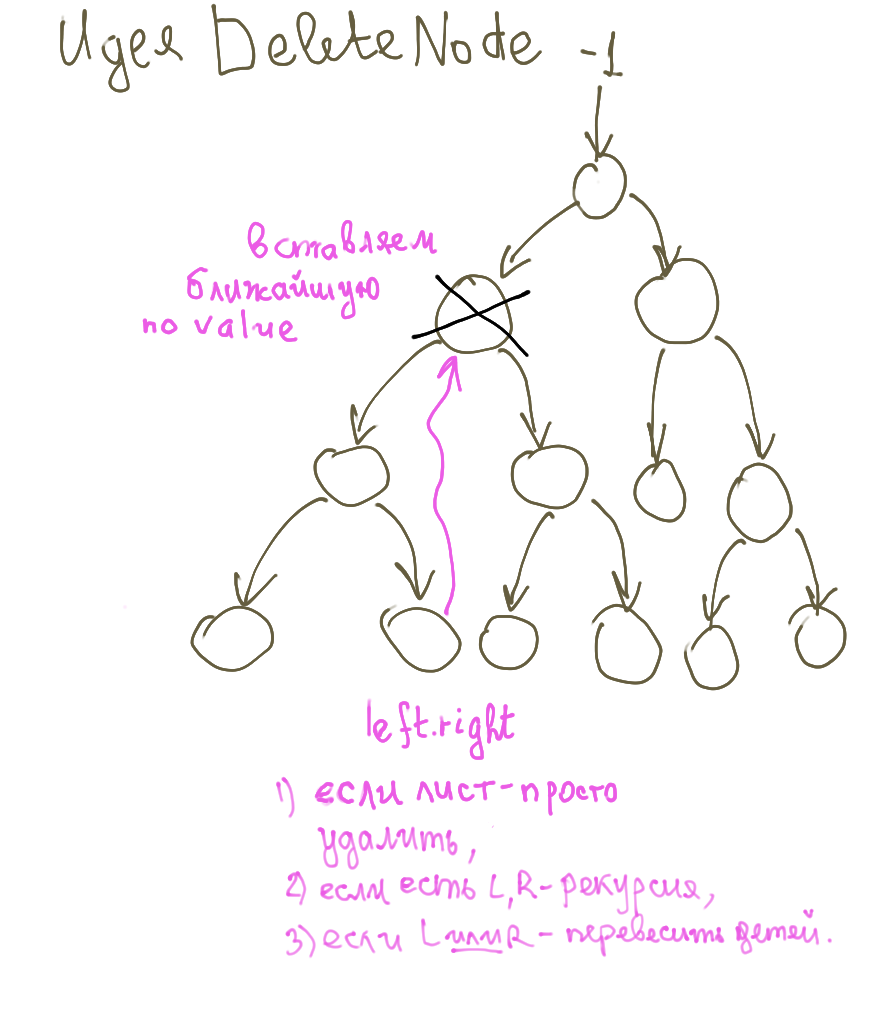 Идея DeleteNode -1
вставляем
ближайшую
по value
left.right
1) если лист-просто
удалить,
2) если есть L,R-рекурсия,
3) если L или R - перевесить детей.